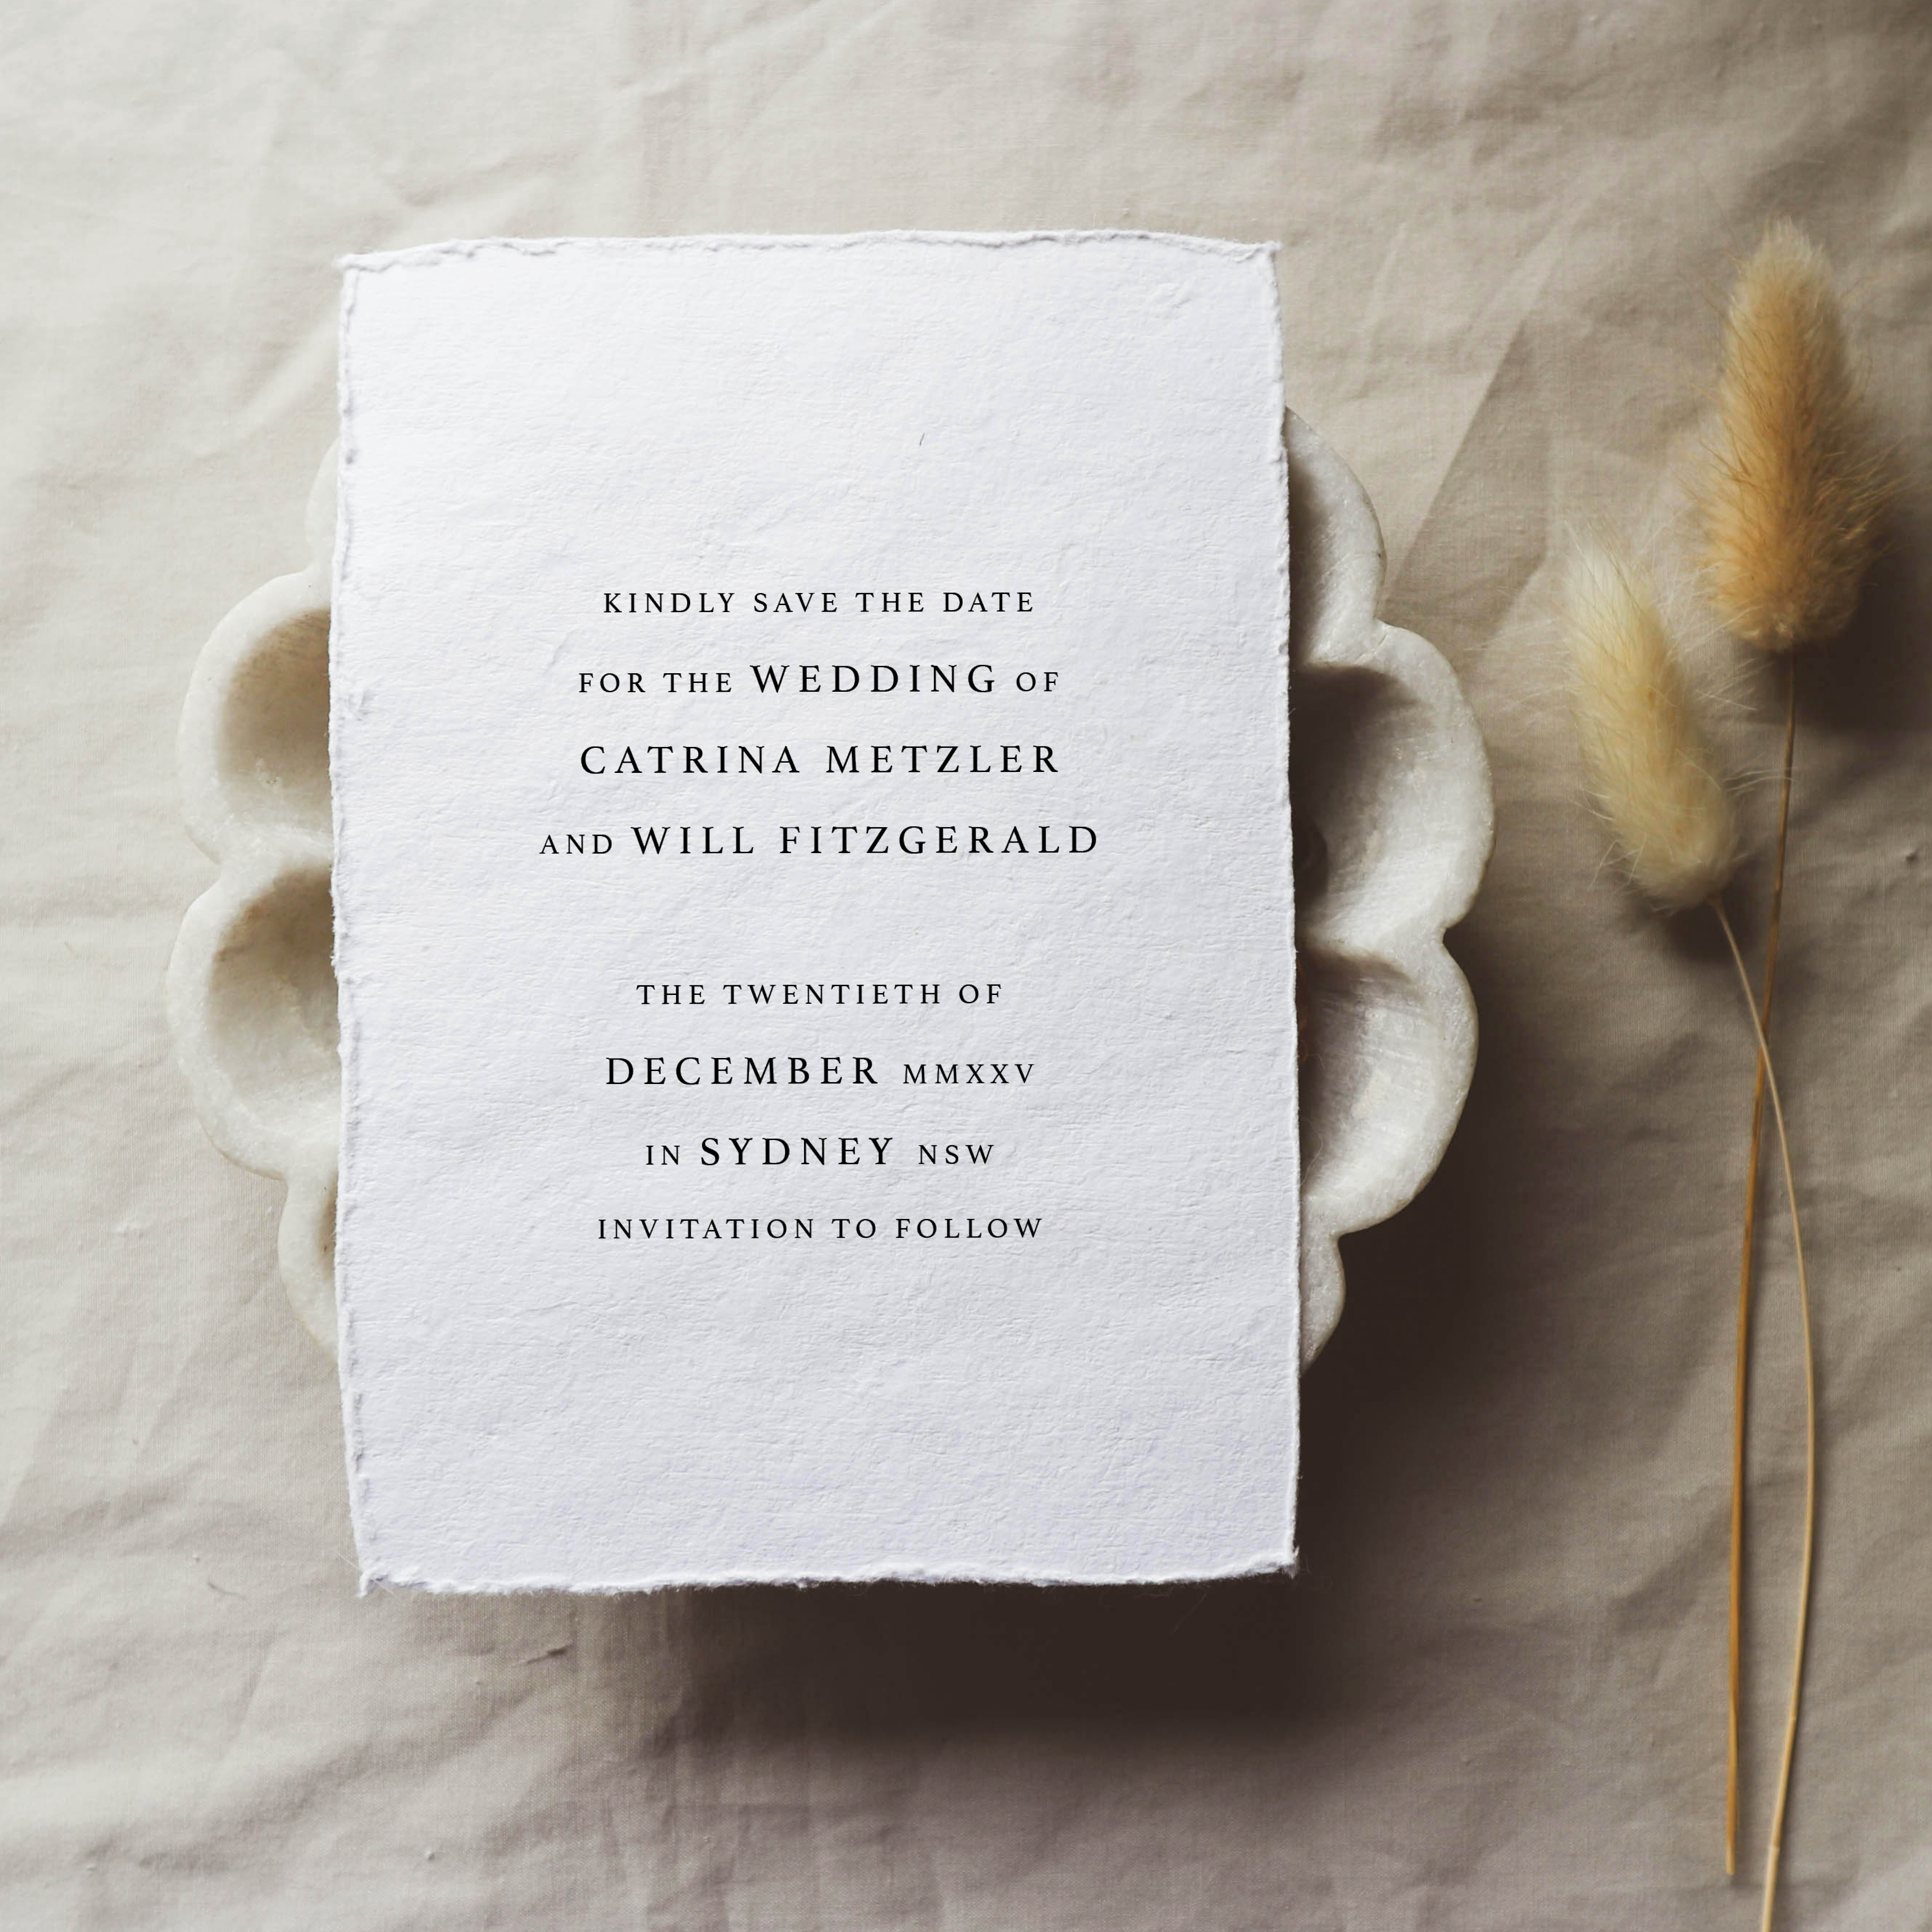 KINDLY SAVE THE DATE
FOR THE WEDDING OF
CATRINA METZLER
AND WILL FITZGERALD
THE TWENTIETH OF
DECEMBER MMXXV
IN SYDNEY NSW
INVITATION TO FOLLOW